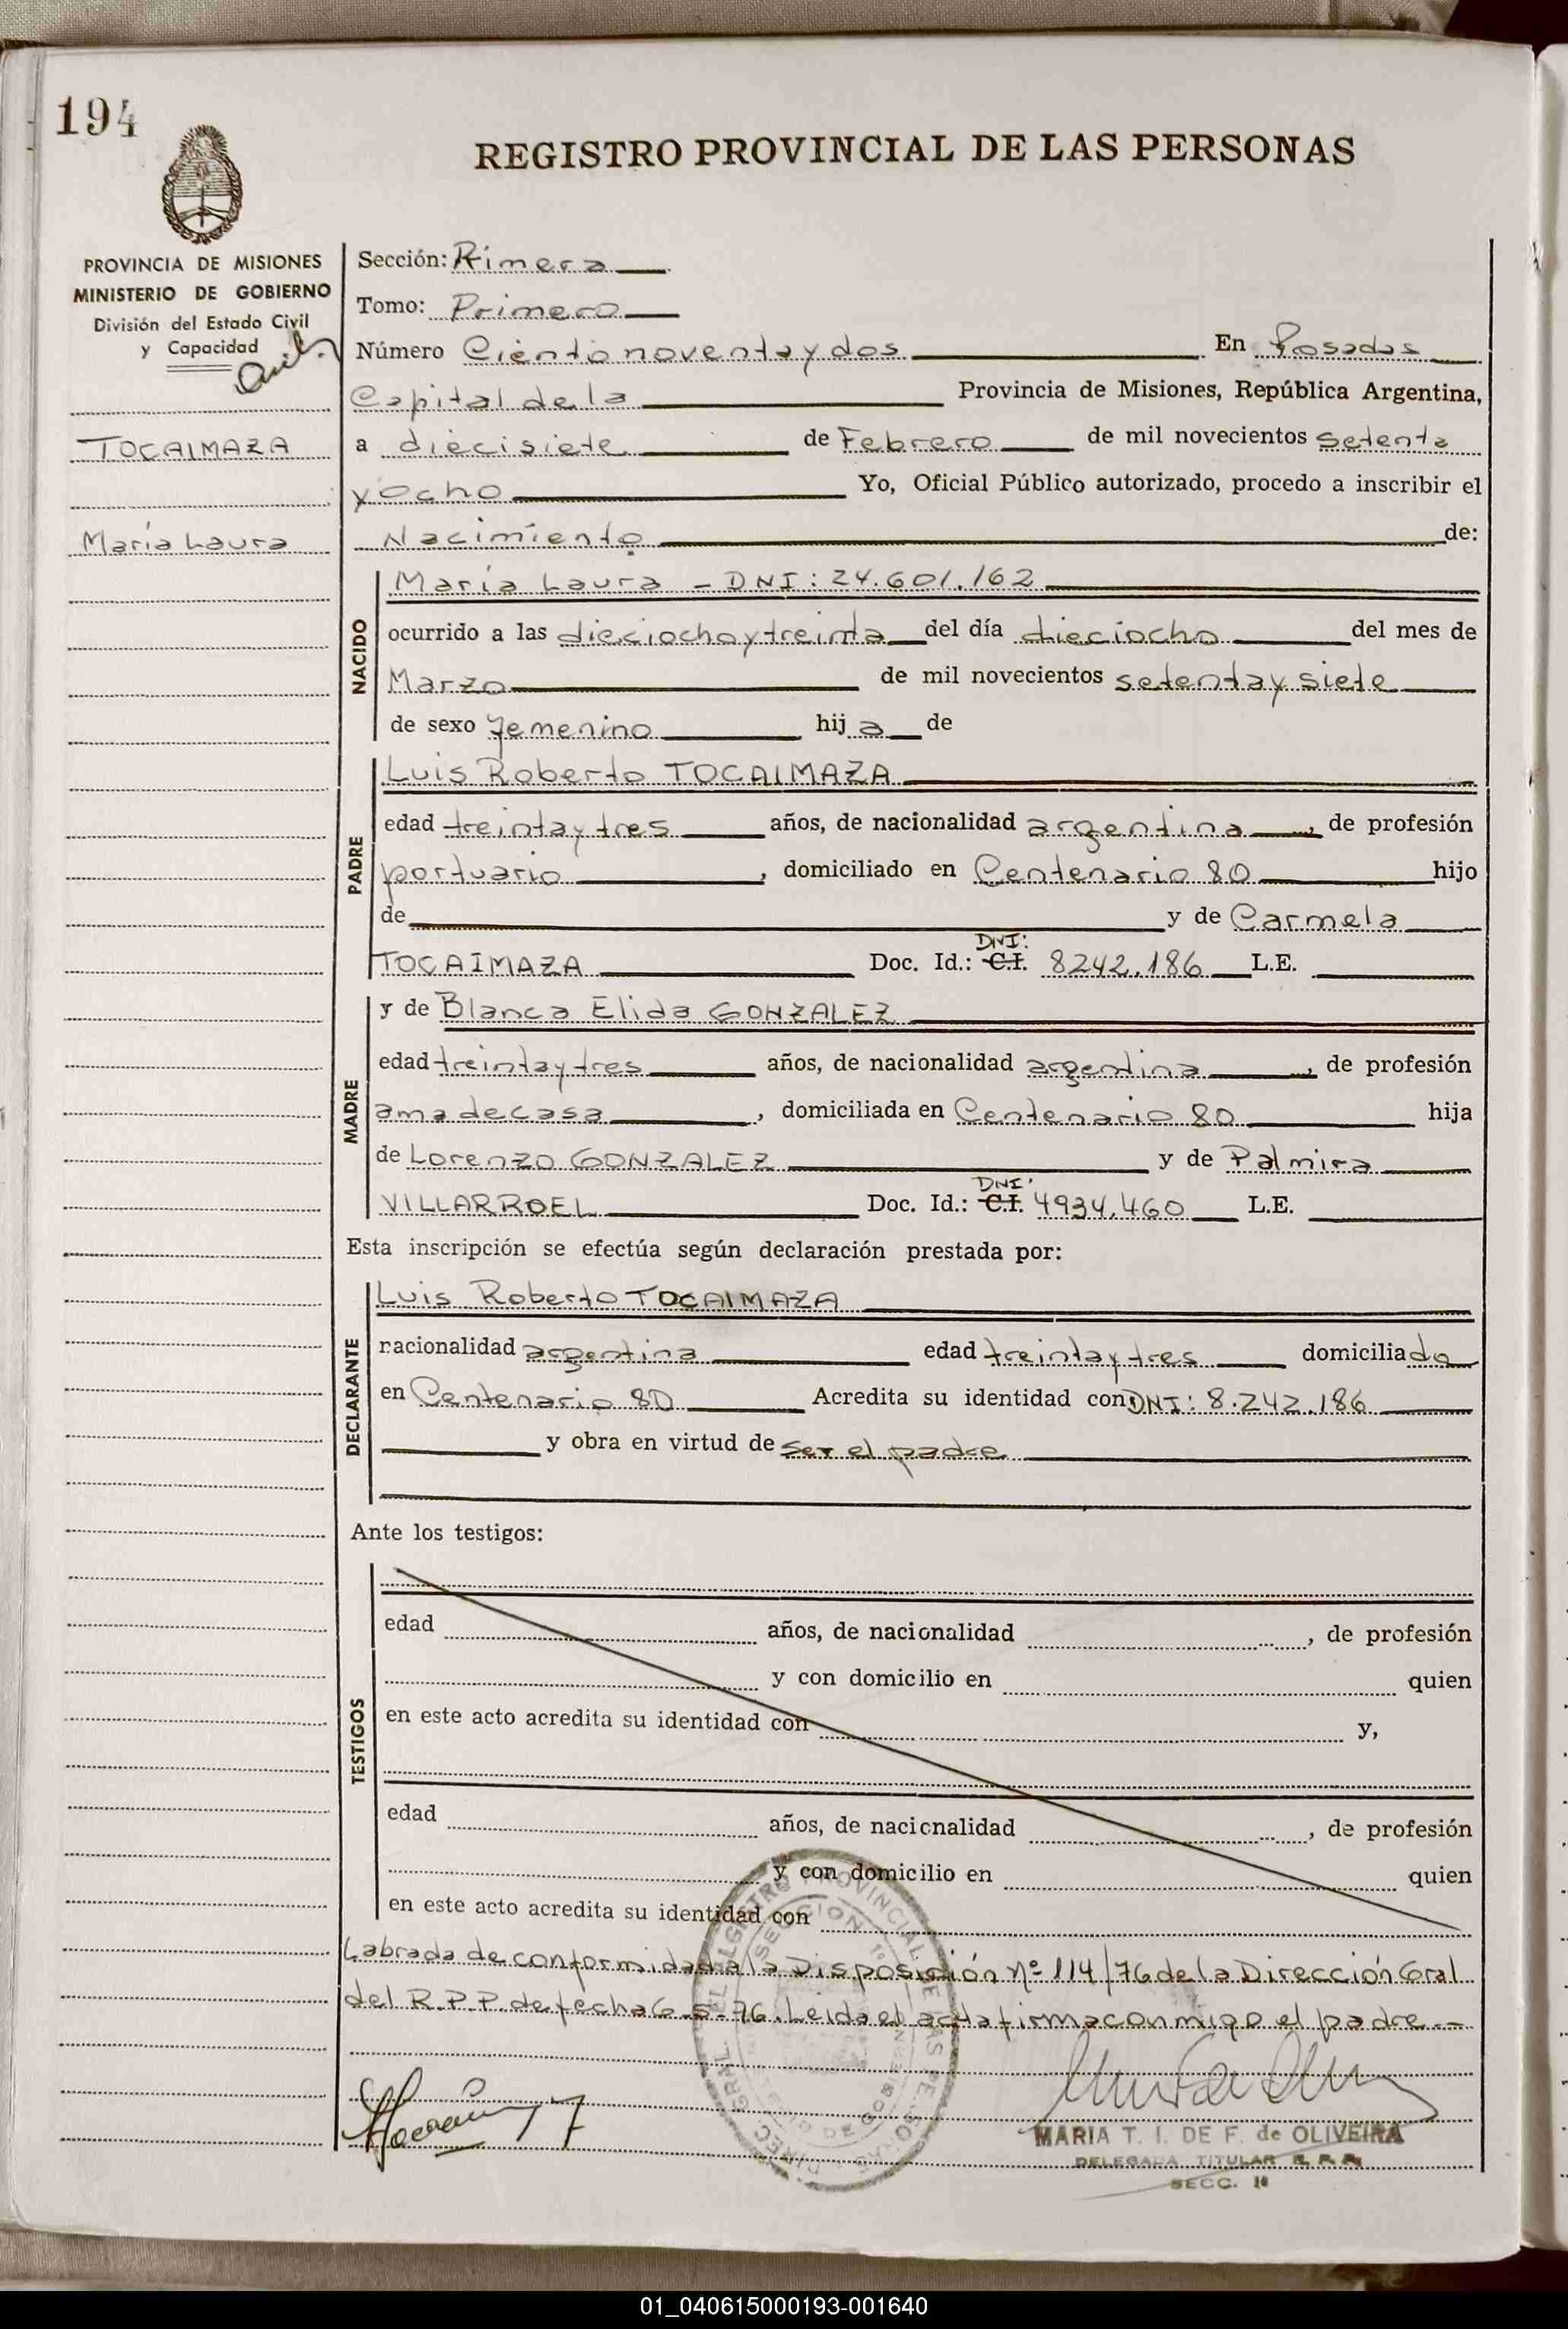 194
REGISTRO PROVINCIAL DE LAS PERSONAS
PROVINCIA DE MISIONES
MINISTERIO DE GOBIERNO
División del Estado Civil
y Capacidad
TOCAIMAZA
María Laura
Sección: Primera
Tomo: Primero
Número Ciento noventa y dos En Posadas
Capital de la Provincia de Misiones, República Argentina,
a diecisiete de Febrero de mil novecientos setenta
y ocho Yo, Oficial Público autorizado, procedo a inscribir el
Nacimiento de:
NACIDO
María Laura - DNI: 24.601.162
ocurrido a las dieciocho y treinta del día dieciocho del mes de
Marzo de mil novecientos setenta y siete
de sexo femenino hija de
PADRE
Luis Roberto TOCAIMAZA
edad treinta y tres años, de nacionalidad argentina, de profesión
portuario, domiciliado en Centenario 80 hijo
de y de Carmela
TOCAIMAZA Doc. Id.: C.I. DNI: 8242.186 L.E.
MADRE
y de Blanca Elida GONZALEZ
edad treinta y tres años, de nacionalidad argentina, de profesión
ama de casa, domiciliada en Centenario 80 hija
de Lorenzo GONZALEZ y de Palmira
VILLARROEL Doc. Id.: C.I. DNI: 4934.460 L.E.
Esta inscripción se efectúa según declaración prestada por:
DECLARANTE
Luis Roberto TOCAIMAZA
nacionalidad argentina edad treinta y tres domiciliado
en Centenario 80 Acredita su identidad con DNI: 8.242.186
y obra en virtud de ser el padre
Ante los testigos:
TESTIGOS
edad años, de nacionalidad, de profesión
y con domicilio en quien
en este acto acredita su identidad con y,
edad años, de nacionalidad, de profesión
y con domicilio en quien
en este acto acredita su identidad con
Labrada de conformidad a la Disposición Nº 114/76 de la Dirección Gral
del R.P.P. de fecha 6-5-76. Leida el acta firma conmigo el padre.-
MARIA T. I. DE F. de OLIVEIRA
DELEGADA TITULAR R.P.P.
SECC. 1ª
01_040615000193-001640